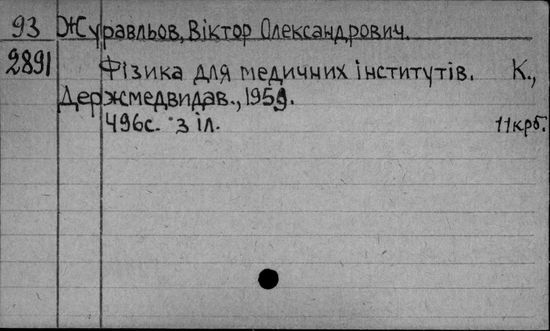 93 Журавльов, Віктор Олександрович.
2891 Фізика для медичних інститутів. К.,
Держмедвидав., 1959.
496с. з іл. 11крб.